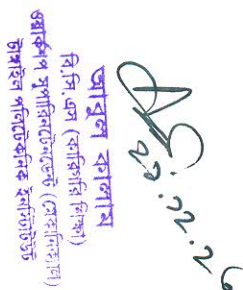 আবুল কালাম
বি.সি.এস (কারিগরি শিক্ষা)
ওয়ার্কশপ সুপারিনটেনডেন্ট (মেকানিক্যাল)
পলিটেকনিক ইনস্টিটিউট